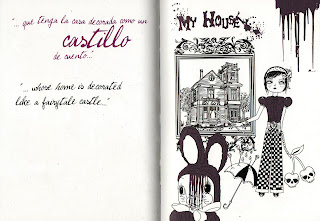 "... que tenga la casa decorada como un
castillo
de cuento..."
"... whose home is decorated
like a fairytale castle..."
My House